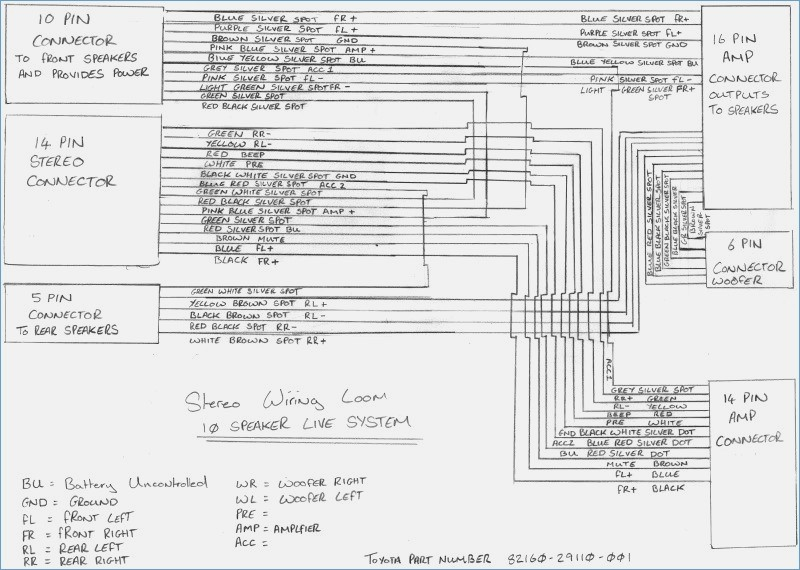 10 PIN
CONNECTOR
TO FRONT SPEAKERS
AND PROVIDES POWER
BLUE SILVER SPOT FR+
PURPLE SILVER SPOT FL+
BROWN SILVER SPOT GND
PINK BLUE SILVER SPOT AMP+
BLUE YELLOW SILVER SPOT BU
GREY SILVER SPOT ACC 1
PINK SILVER SPOT FL-
LIGHT GREEN SILVER SPOT FR-
GREEN SILVER SPOT
RED BLACK SILVER SPOT
BLUE SILVER SPOT FR+
PURPLE SILVER SPOT FL+
BROWN SILVER SPOT GND
BLUE YELLOW SILVER SPOT BU
PINK SILVER SPOT FL-
LIGHT GREEN SILVER FR+
SPOT
16 PIN
AMP
CONNECTOR
OUTPUTS
TO SPEAKERS
14 PIN
STEREO
CONNECTOR
GREEN RR-
YELLOW RL-
RED BEEP
WHITE PRE
BLACK WHITE SILVER SPOT GND
BLUE RED SILVER SPOT ACC 2
GREEN WHITE SILVER SPOT
RED BLACK SILVER SPOT
PINK BLUE SILVER SPOT AMP +
GREEN SILVER SPOT
RED SILVER SPOT BU
BROWN MUTE
BLUE FL+
BLACK FR+
BLUE RED SILVER SPOT
BLUE BLACK SILVER SPOT
GREEN BLACK SILVER SPOT
BLUE BLACK SILVER
GR SILVER SPOT
BROWN
SILVER
SPOT
6 PIN
CONNECTOR
WOOFER
5 PIN
CONNECTOR
TO REAR SPEAKERS
GREEN WHITE SILVER SPOT
YELLOW BROWN SPOT RL+
BLACK BROWN SPOT RL-
RED BLACK SPOT RR-
WHITE BROWN SPOT RR+
ACC 1
GREY SILVER SPOT
RR+ GREEN
RL- YELLOW
BEEP RED
PRE WHITE
GND BLACK WHITE SILVER DOT
ACC2 BLUE RED SILVER DOT
BU RED SILVER DOT
MUTE BROWN
FL+ BLUE
FR+ BLACK
14 PIN
AMP
CONNECTOR
Stereo Wiring Loom
10 SPEAKER LIVE SYSTEM
BU = Battery Uncontrolled
GND = GROUND
FL = FRONT LEFT
FR = FRONT RIGHT
RL = REAR LEFT
RR = REAR RIGHT
WR = WOOFER RIGHT
WL = WOOFER LEFT
PRE =
AMP = AMPLFIER
ACC =
TOYOTA PART NUMBER 82160-29110-001